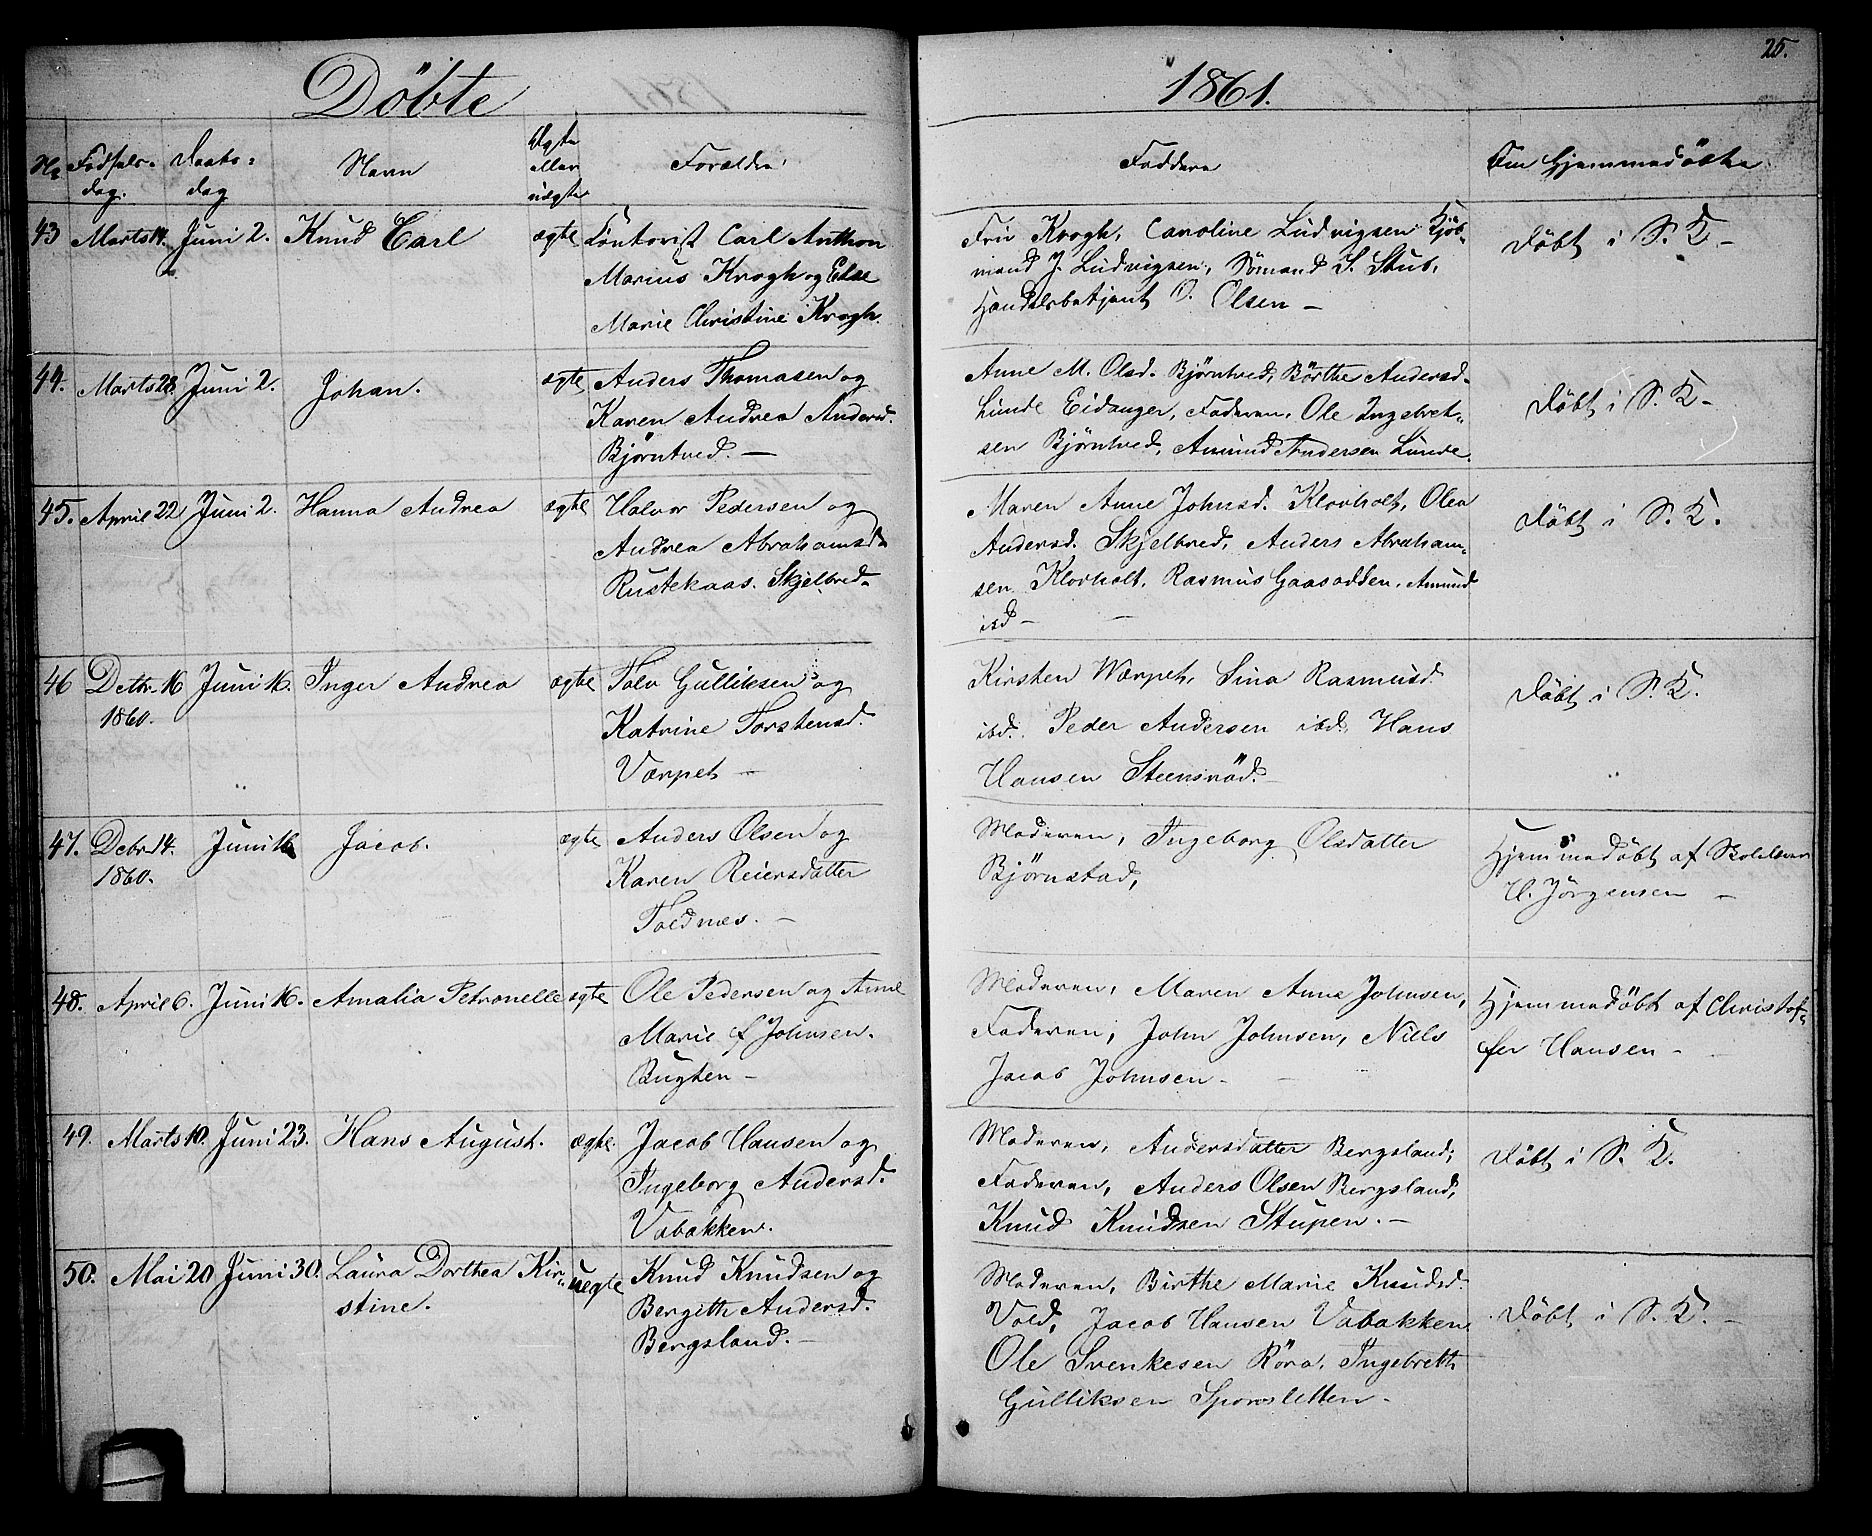 Döbte
1861.
25.
No Fødsels-dag. Daabs-dag Navn Ægte eller uægte Forældre Faddere Om Hjemmedöbte
43 Marts 14. Juni 2. Knud Carl ægte
Contorist Carl Anthon
Marius Krogh og Else
Marie Christine Krogh.
Fru Krogh, Caroline Ludvigsen Kjöb-
mand J. Ludvigsen, Sömand S. Stub,
Handelsbetjent O. Olsen –
Döbt i S. K –
44. Marts 28. Juni 2. Johan. ægte
Anders Thomasen og
Karen Andrea Andersd.
Bjørntved. –
Anne M. Olsd. Bjørntved, Börthe Andersd.
Lunde Eidanger, Faderen, Ole Ingebret-
sen Bjørntved, Amund Andersen Lunde.
Döbt i S. K –
45. April 22 Juni 2. Hanna Andrea ægte
Halvor Pedersen og
Andrea Abrahamsd.
Rustekaas. Skjelbred.
Maren Anne Johnsd. Klovholt, Olea
Andersd. Skjelbred, Anders Abraham-
sen Klovholt, Rasmus Gaasodden, Amund
ibd –
Döbt i S. K.
46 Dcbr. 16 Juni 16. Inger Andrea ægte
1860.
Tolv Gulliksen og
Katrine Torstensd.
Værpet –
Kirsten Værpet, Sina Rasmusd.
ibd. Peder Andersen ibd, Hans
Hansen Steensröd. –
Döbt i S. K.
47. Debr. 14. Juni 16 Jacob. ægte
1860.
Anders Olsen og
Karen Reiersdatter
Toldnæs. –
Moderen, Ingeborg Olsdatter
Bjørnstad,
Hjemmedöbt af
H. Jörgensen –
48. April 6. Juni 16. Amalia Petronelle ægte
Ole Pedersen og Anne
Marie Johnsen.
Bugten –
Moderen, Maren Anne Johnsen,
Faderen, John Johnsen, Niels
Jacob Johnsen. –
Hjemmedöbt af Christof-
fer Hansen –
49. Marts 10. Juni 23. Hans August. ægte.
Jacob Hansen og
Ingeborg Andersd.
Vabakken.
Moderen, Andersdatter Bergsland,
Faderen, Anders Olsen Bergsland,
Knud Knudsen Stupen. –
Döbt i S. K.
50. Mai 20 Juni 30. Laura Dorthea Kir-
stine. uægte
Knud Knudsen og
Bergithe Andersd.
Bergsland. –
Moderen, Birthe Marie Knudsd.
Vold, Jacob Hansen Vabakken
Ole Svenkesen Röra, Ingebreth
Gulliksen Sporsletten –
Döbt i S. K. –